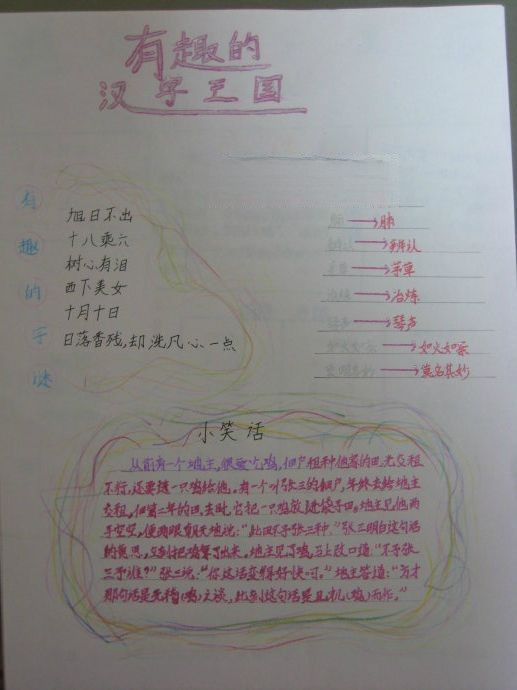 有趣的
汉字王国
有趣的字谜
旭日不出
十八乘六
树心有泪
西下美女
十月十日
日落香残,却洗凡心一点
肺
辨认
茅草
冶炼
琴声
如火如荼
莫名其妙
小笑话
从前有一个地主,很爱吃鸡,佃户租种他家的田,光交租
不行,还要送一只鸡给他。有一个叫张三的佃户,年终去给地主
交租,佃第二年的田。去时,它把一只鸡放进袋子里。地主见他两
手空空,便两眼朝天地说:"此田不予张三种。"张三明白这句话
的意思,立刻把鸡拿了出来。地主见了鸡,马上改口道:"不予张
三予谁?"张三说:"你这话变得好快呵。"地主答道:"方才
那句话是无稽(鸡)之谈,此刻这句话是见机(鸡)而作。"